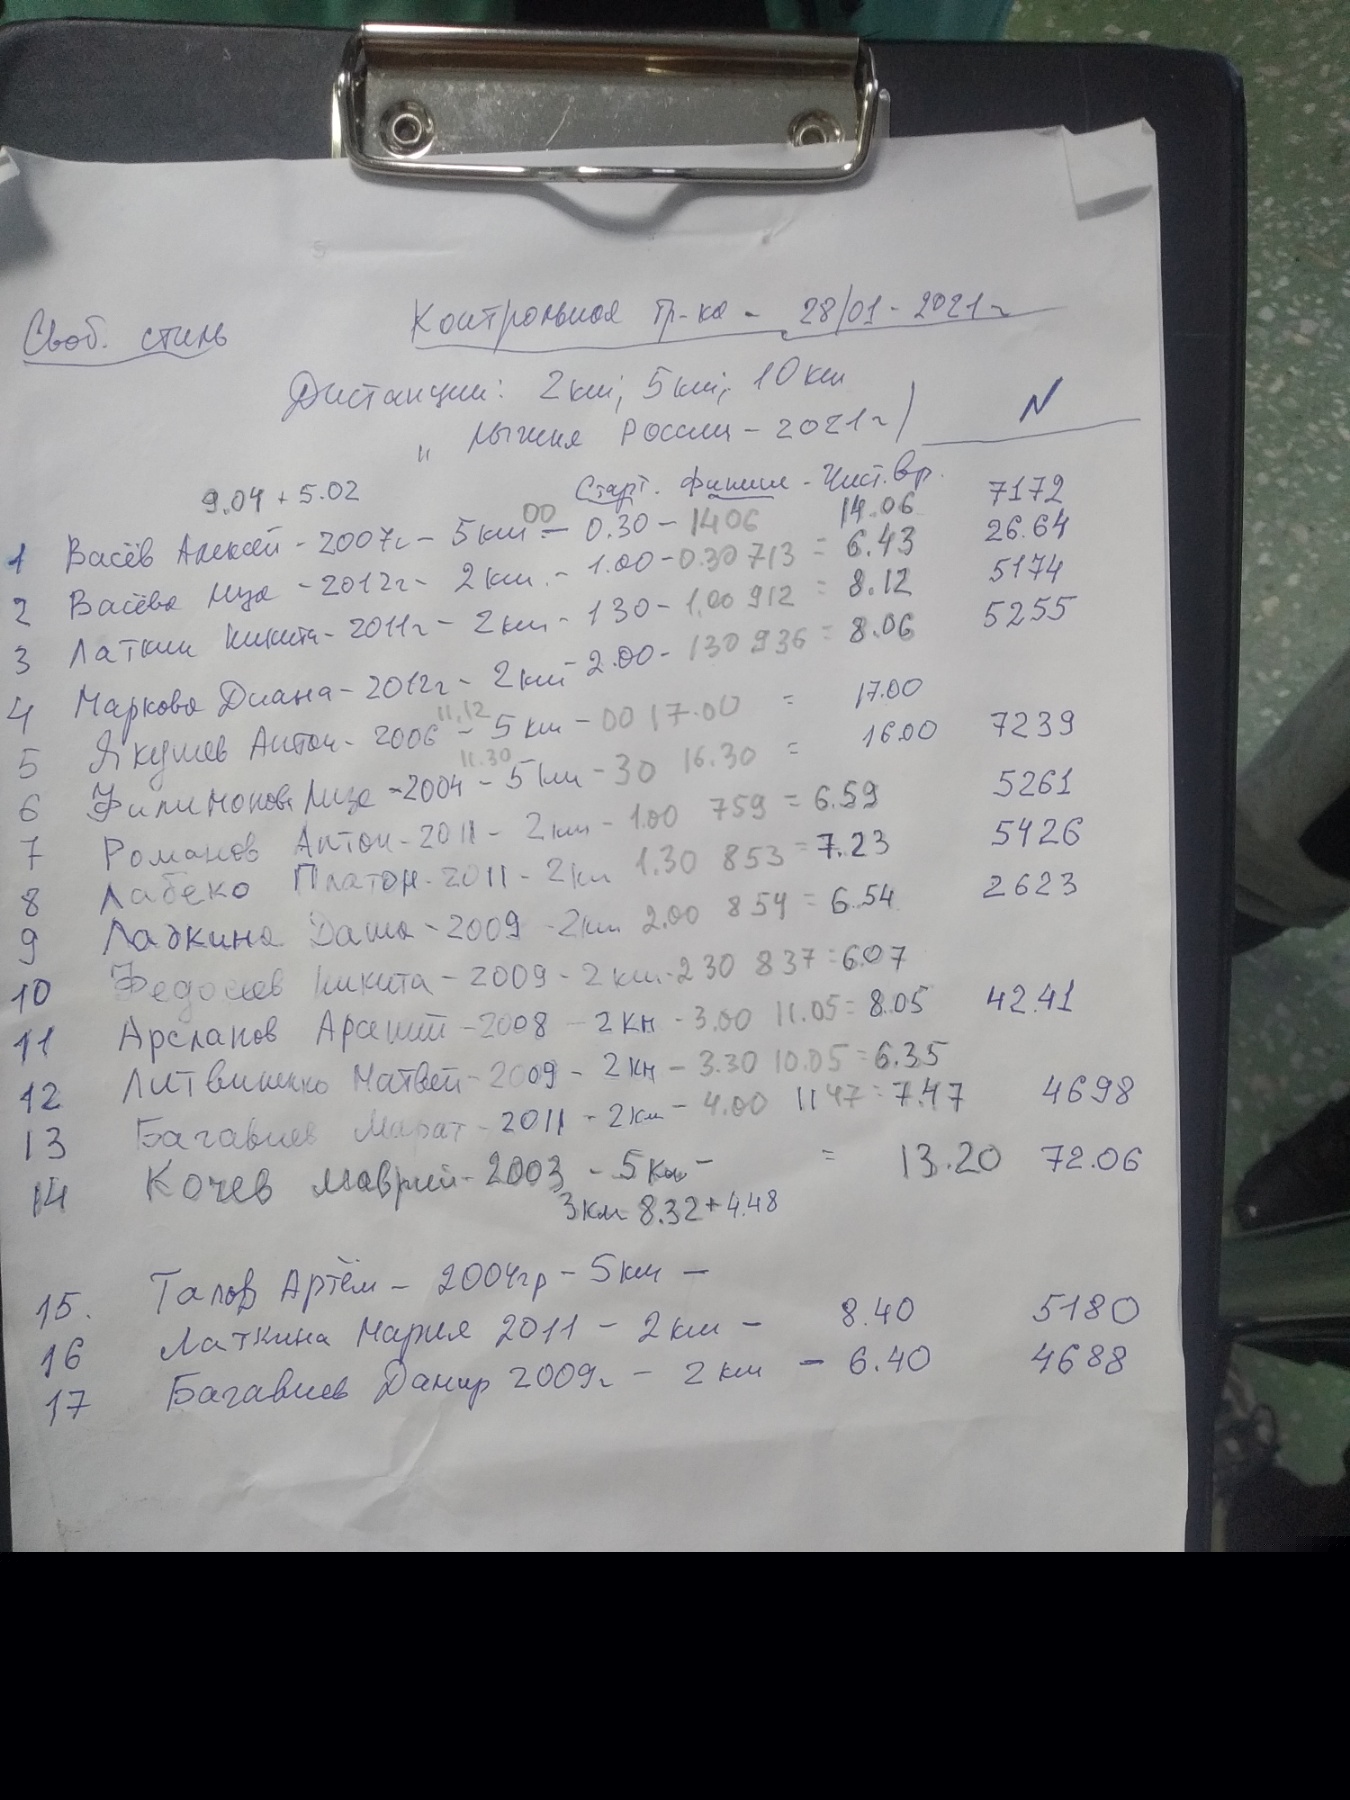 Своб. стиль Контрольная тр-ка - 28/01 - 2021г
Дистанции: 2 км; 5 км; 10 км
" Лыжня России - 2021г) N
9.04 + 5.02 Старт. финиш - Чист. вр.
1 Васёв Алексей - 2007г - 5 км 00 - 0.30 - 1406 14.06 7172
2 Васёва Лиза - 2012г - 2 км. - 1.00 - 0.30 713 = 6.43 26.64
3 Латкин Никита - 2011г - 2 км - 130 - 1,00 912 = 8.12 5174
4 Маркова Диана - 2012г - 2 км - 2.00 - 130 936 = 8.06 5255
5 Якушев Антон - 2006 11.12 - 5 км - 00 17.00 = 17.00
6 Филимонова Лиза - 2004 11.30 - 5 км - 30 16.30 = 16.00 7239
7 Романов Антон - 2011 - 2 км - 1.00 759 = 6.59 5261
8 Лабеко Платон - 2011 - 2 км 1.30 853 = 7.23 5426
9 Латкина Даша - 2009 - 2 км 2.00 854 = 6.54 2623
10 Федосеев Никита - 2009 - 2 км - 230 837 = 6.07
11 Арсланов Арсений - 2008 - 2 км - 3.00 11.05 = 8.05 42.41
12 Литвиненко Матвей - 2009 - 2 км - 3.30 10.05 = 6.35
13 Багавиев Марат - 2011 - 2 км - 4.00 1147 = 7.47 4698
14 Кочев Маврий - 2003 - 5 км - = 13.20 72.06
3 км - 8.32 + 4.48
15. Талов Артём - 2004гр - 5 км -
16 Латкина Мария 2011 - 2 км - 8.40 5180
17 Багавиев Данир 2009г - 2 км - 6.40 4688